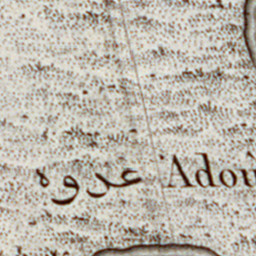 عدوه Adou